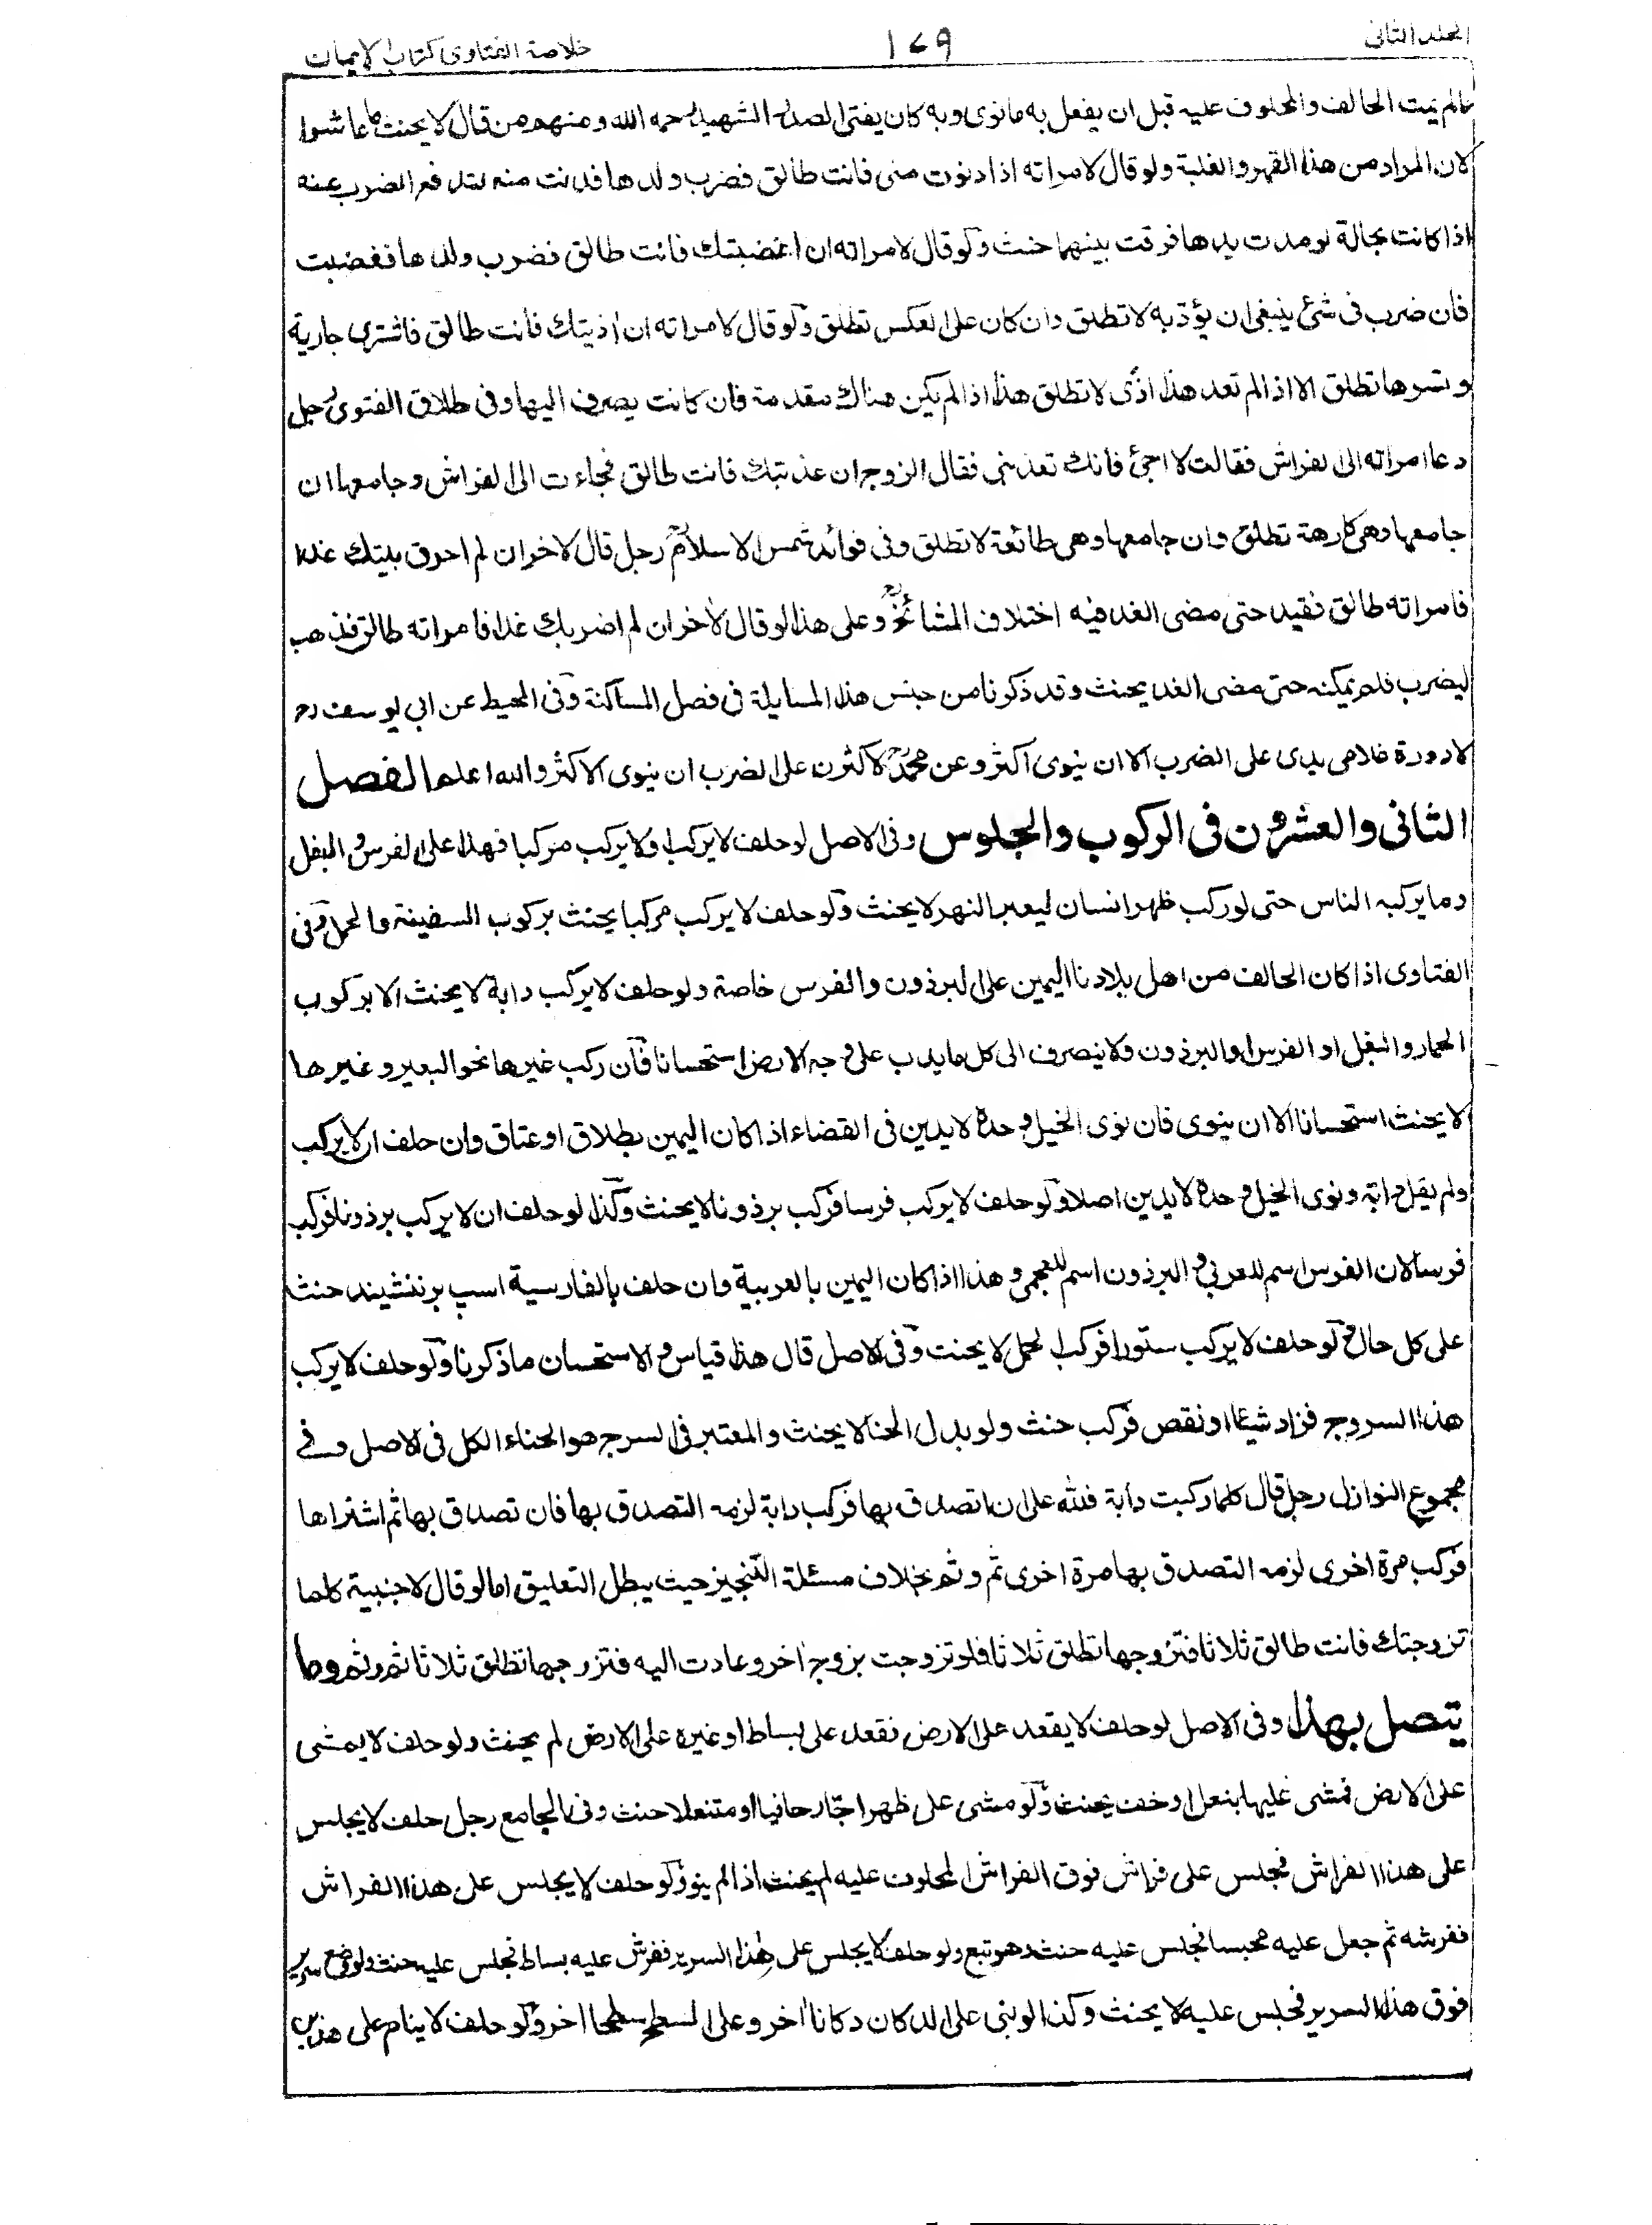 الجلد الثانى
۱۷۹
خلاصة الفتاوى كتاب الايمان
مالم يمت الحالف والمحلوف عليه قبل ان يفعل به مانوى وبه كان يفتى الصدر الشهيد رحمه الله ومنهم من قال لا يحنث ما عاشوا
لان المراد من هذا القهر والغلبة ولو قال لامراته اذا دنوت منى فانت طالق فضرب ولدها فدنت منه لتدفع الضرب عنه
اذا كانت بحالة لو مدت يدها فرقت بينهما حنث ولو قال لامراته ان اغضبتك فانت طالق فضرب ولدها فغضبت
فان ضرب فى شئ ينبغى ان يؤدبه لا تطلق وان كان على العكس تطلق ولو قال لامراته ان اذيتك فانت طالق فاشترى جارية
وتسرها تطلق الا اذا لم تعد هذا اذى لا تطلق هذا اذا لم يكن هناك مقدمة فان كانت يصرف اليها وفى طلاق الفتوى رجل
دعا امراته الى الفراش فقالت لا اجئ فانك تعذبنى فقال الزوج ان عذبتك فانت طالق فجاءت الى الفراش وجامعها ان
جامعها وهى كارهة تطلق وان جامعها وهى طائعة لا تطلق وفى فوائد شمس الاسلام رح رجل قال لاخر ان لم احرق بيتك غدا
فامراته طالق فقيد حتى مضى الغد فيه اختلاف المشائخ رح وعلى هذا لو قال لاخر ان لم اضربك غدا فامراته طالق فذهب
ليضرب فلم يمكنه حتى مضى الغد يحنث وقد ذكرنا من جنس هذا المسايلة فى فصل المساكنة وفى المحيط عن ابى يوسف رح
لا دورة فلاحى بدى على الضرب الا ان ينوى اكثر وعن محمد رح لاكثرن على الضرب ان ينوى الاكثر والله اعلم الفصل
الثانى والعشرون فى الركوب والجلوس وفى الاصل لو حلف لا يركب او لا يركب مركبا فهذا على الفرس والبغل
وما يركبه الناس حتى لو ركب ظهر انسان ليعبر النهر لا يحنث ولو حلف لا يركب مركبا يحنث بركوب السفينة والمحمل وفى
الفتاوى اذا كان الحالف من اهل بلادنا اليمين على البرذون والفرس خاصة ولو حلف لا يركب دابة لا يحنث الا بركوب
الحمار والبغل او الفرس او البرذون ولا ينصرف الى كل ما يدب على وجه الارض استحسانا فان ركب غيرها نحو البعير وغيرها
لا يحنث استحسانا الا ان ينوى فان نوى الخيل وحده لا يدين فى القضاء اذا كان اليمين بطلاق او عتاق وان حلف ان لا يركب
ولم يقل دابة ونوى الخيل وحده لا يدين اصلا ولو حلف لا يركب فرسا فركب برذونا لا يحنث وكذا لو حلف ان لا يركب برذونا فركب
فرسا لان الفرس اسم للعربى و البرذون اسم للعجمى وهذا اذا كان اليمين بالعربية وان حلف بالفارسية اسپ بر ننشيند حنث
على كل حال ولو حلف لا يركب ستورا فركب الجمل لا يحنث وفى الاصل قال هذا قياس والاستحسان ماذكرنا ولو حلف لا يركب
هذا السروج فزاد شيئا او نقص فركب حنث ولو بدل الحنا لا يحنث والمعتبر فى السرج هو الحناء الكل فى الاصل وفى
مجموع النوازل رجل قال كلما ركبت دابة فلله على ان اتصدق بها فركب دابة لزمه التصدق بها فان تصدق بها ثم اشتراها
فركب مرة اخرى لزمه التصدق بها مرة اخرى ثم وثم بخلاف مسئلة التنجيز حيث يبطل التعليق اما لو قال لاجنبية كلما
تزوجتك فانت طالق ثلاثا فتزوجها تطلق ثلاثا فلو تزوجت بزوج اخر وعادت اليه فتزوجها تطلق ثلاثا ثم وثم وما
يتصل بهذا وفى الاصل لو حلف لا يقعد على الارض فقعد على بساط او غيره على الارض لم يحنث ولو حلف لا يمشى
على الارض فمشى عليها بنعل او خف يحنث ولو مشى على ظهر احجار حافيا او متنعلا حنث وفى الجامع رجل حلف لا يجلس
على هذا الفراش فجلس على فراش فوق الفراش المحلوف عليه لم يحنث اذا لم ينو ولو حلف لا يجلس على هذا الفراش
ففرشه ثم جعل عليه محبسا فجلس عليه حنث وهو تبع ولو حلف لا يجلس على هذا السرير ففرش عليه بساط فجلس عليه حنث ولو وضع سرير
فوق هذا السرير فجلس عليه لا يحنث وكذا لو بنى على الدكان دكانا اخر وعلى السطح سطحا اخر ولو حلف لا ينام على هذين